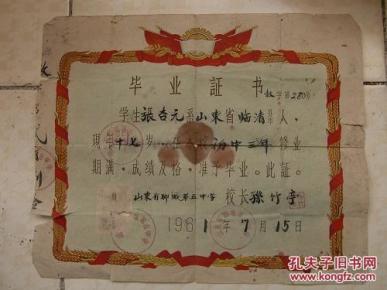 毕业証书
教字第280号
学生張杏元系山東省临清县人，
現年十七岁，在本校初中三年修业
期满，成绩及格，准予毕业。此証。
山东省聊城第五中学 校长孫竹亭
1961年7月15日
孔夫子旧书网